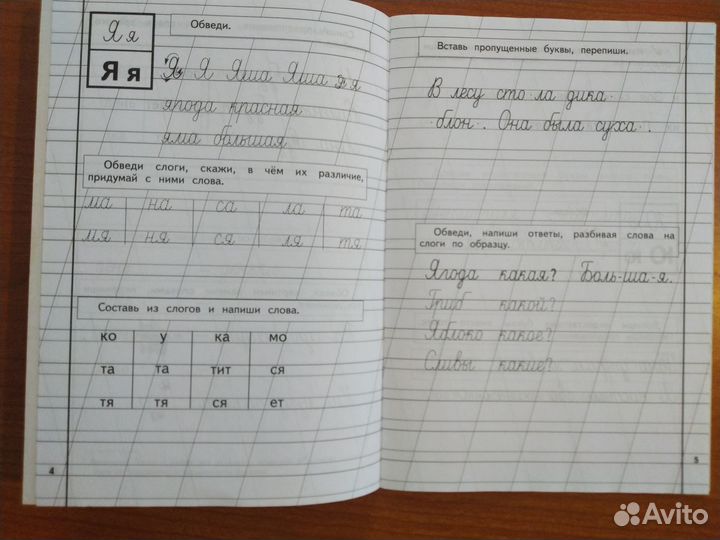 Я я
Я я
Обведи.
Я Я Яша Яша я я
ягода красная
яма большая
Обведи слоги, скажи, в чём их различие,
придумай с ними слова.
ма на са ла та
мя ня ся ля тя
Составь из слогов и напиши слова.
ко у ка мо
та та тит ся
тя тя ся ет
4
Вставь пропущенные буквы, перепиши.
В лесу сто·ла дика·
·блон·. Она была суха·.
Обведи, напиши ответы, разбивая слова на
слоги по образцу.
Ягода какая? Боль-ша-я.
Гриб какой?
Яблоко какое?
Сливы какие?
5
Avito